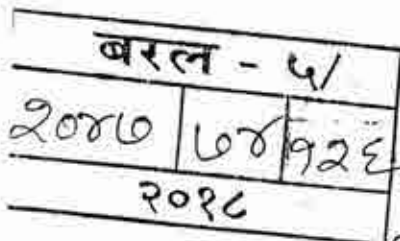 बरल - ५/
२०४७ ७४ १२६
२०१८